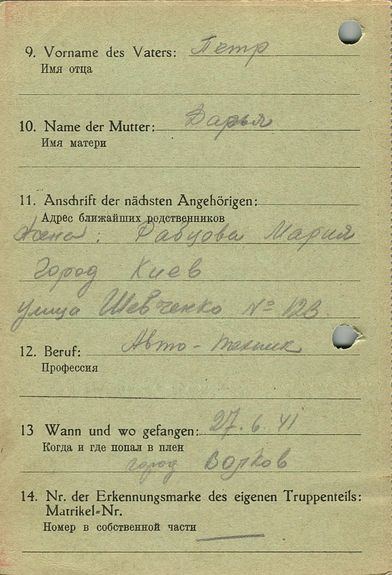 9. Vorname des Vaters: Петр
Имя отца
10. Name der Mutter: Дарья
Имя матери
11. Anschrift der nächsten Angehörigen:
Адрес ближайших родственников
Жена: Равцова Мария
Город Киев
улица Шевченко № 123
12. Beruf: Авто-техник
Профессия
13 Wann und wo gefangen: 27.6.41
Когда и где попал в плен
город Волков
14. Nr. der Erkennungsmarke des eigenen Truppenteils:
Matrikel-Nr.
Номер в собственной части